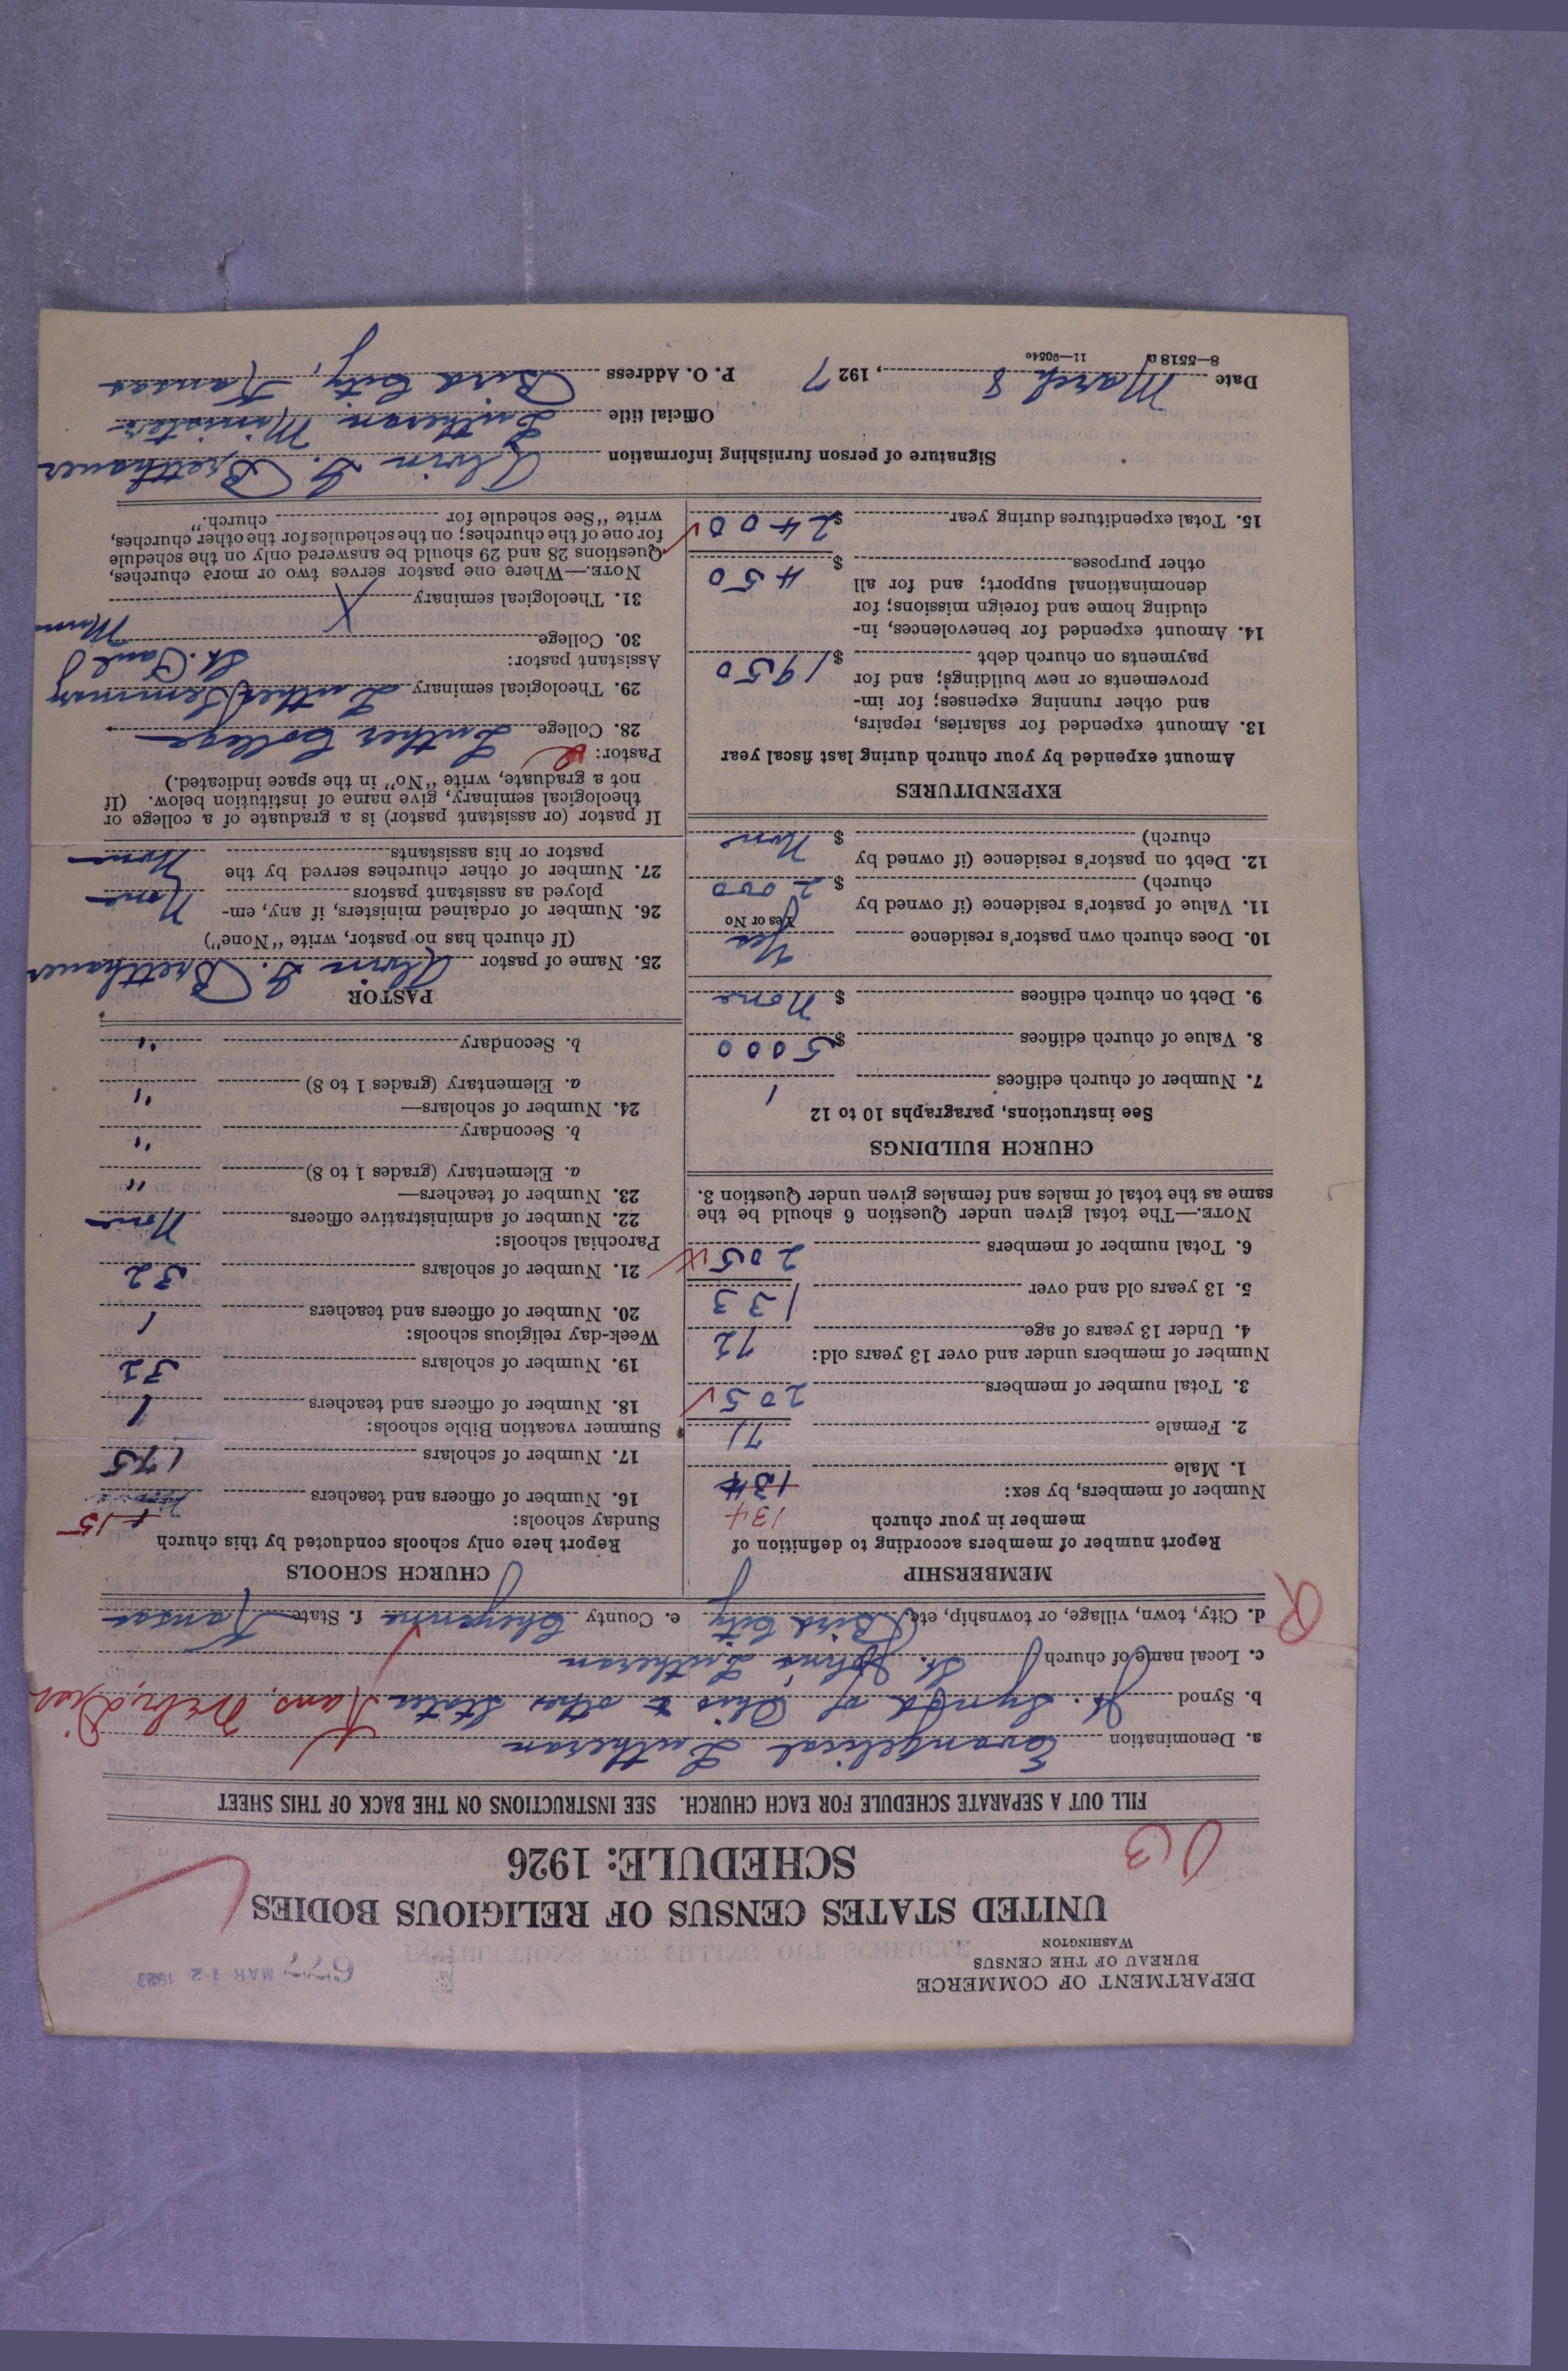 DEPARTMENT OF COMMERCE
BUREAU OF THE CENSUS
WASHINGTON
677 MAR 12 1927
UNITED STATES CENSUS OF RELIGIOUS BODIES
SCHEDULE: 1926
FILL OUT A SEPARATE SCHEDULE FOR EACH CHURCH. SEE INSTRUCTIONS ON THE BACK OF THIS SHEET
a. Denomination Evangelical Lutheran
b. Synod Jt. Synod of Ohio & other States Kans,
c. Local name of church St. John's Lutheran
d. City, town, village, or township, etc. Bird City e. County Cheyenne f. State Kansas
MEMBERSHIP
Report number of members according to definition of
member in your church
134
Number of members, by sex:
1. Male 134
2. Female 71
3. Total number of members 205
Number of members under and over 13 years old:
4. Under 13 years of age 72
5. 13 years old and over 133
6. Total number of members 205
NOTE.—The total given under Question 6 should be the
same as the total of males and females given under Question 3.
CHURCH BUILDINGS
See instructions, paragraphs 10 to 12
7. Number of church edifices 1
8. Value of church edifices $ 5000
9. Debt on church edifices $ None
10. Does church own pastor's residence Yes
Yes or No
11. Value of pastor's residence (if owned by
church) $ 2000
12. Debt on pastor's residence (if owned by
church) $ None
EXPENDITURES
Amount expended by your church during last fiscal year
13. Amount expended for salaries, repairs,
and other running expenses; for im-
provements or new buildings; and for
payments on church debt $ 1950
14. Amount expended for benevolences, in-
cluding home and foreign missions; for
denominational support; and for all
other purposes $ 450
15. Total expenditures during year $ 2400
CHURCH SCHOOLS
Report here only schools conducted by this church
Sunday schools:
16. Number of officers and teachers 15
17. Number of scholars 175
Summer vacation Bible schools:
18. Number of officers and teachers 1
19. Number of scholars 32
Week-day religious schools:
20. Number of officers and teachers 1
21. Number of scholars 32
Parochial schools:
22. Number of administrative officers None
23. Number of teachers—
a. Elementary (grades 1 to 8) "
b. Secondary "
24. Number of scholars—
a. Elementary (grades 1 to 8) "
b. Secondary "
PASTOR
25. Name of pastor Alvin G. Bretthauer
(If church has no pastor, write "None")
26. Number of ordained ministers, if any, em-
ployed as assistant pastors None
27. Number of other churches served by the
pastor or his assistants None
If pastor (or assistant pastor) is a graduate of a college or
theological seminary, give name of institution below. (If
not a graduate, write "No" in the space indicated.)
Pastor:
28. College Luther College
29. Theological seminary Luther Seminary
St. Paul
Minn
Assistant pastor:
30. College
31. Theological seminary
NOTE.—Where one pastor serves two or more churches,
Questions 28 and 29 should be answered only on the schedule
for one of the churches; on the schedules for the other churches,
write "See schedule for church."
Signature of person furnishing information Alvin G. Bretthauer
Official title Lutheran Minister
Date March 8, 1927 P. O. Address Bird City, Kansas
8—5518 a 11—9054c